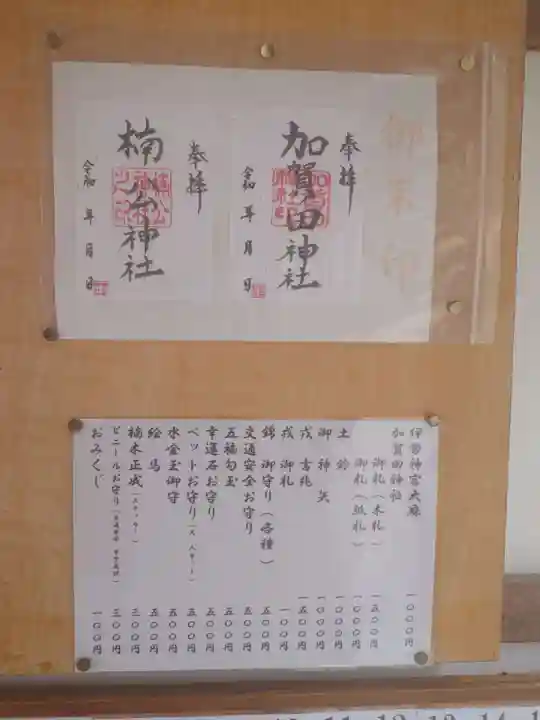 御朱印
奉拝
加賀田神社
令和 年 月 日
奉拝
楠公神社
令和 年 月 日
伊勢神宮大麻 一〇〇〇円
加賀田神社
御札(木札) 一五〇〇円
御札(紙札) 一〇〇〇円
土鈴 一〇〇〇円
御神矢 一〇〇〇円
戎吉兆 一五〇〇円
戎御札 一〇〇円
錦御守り(各種) 五〇〇円
交通安全お守り 五〇〇円
五福勾玉 五〇〇円
幸運石お守り 五〇〇円
ペットお守り 五〇〇円
水金玉御守 五〇〇円
絵馬 五〇〇円
楠木正成(ステッカー) 三〇〇円
ビニールお守り 三〇〇円
おみくじ 一〇〇円